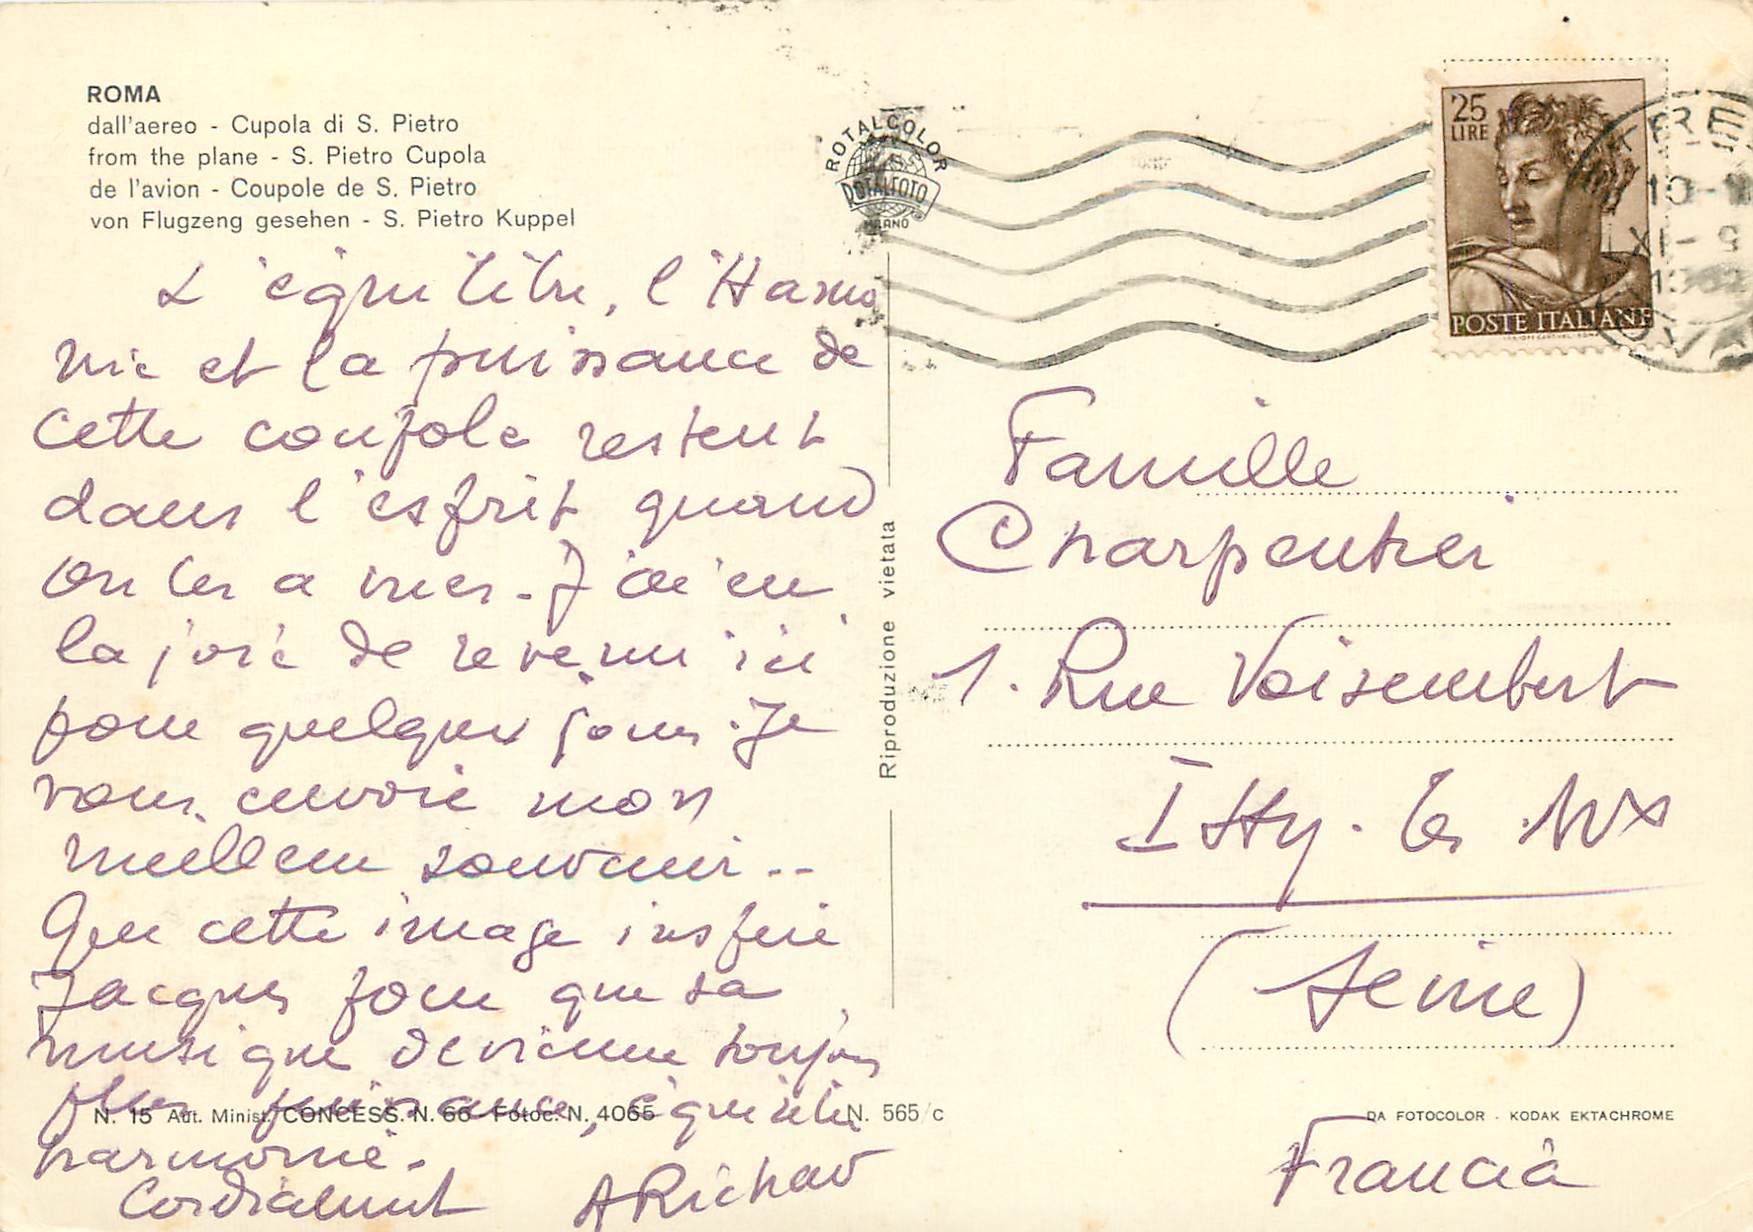 ROMA
dall'aereo - Cupola di S. Pietro
from the plane - S. Pietro Cupola
de l'avion - Coupole de S. Pietro
von Flugzeng gesehen - S. Pietro Kuppel
ROTALCOLOR
ROTALFOTO
MILANO
25
LIRE
POSTE ITALIANE
L'équilibre, l'Harmo
nie et la puissance de
cette coupole restent
dans l'esprit quand
on les a vues. J'ai eu
la joie de revenir ici
pour quelques jours. Je
vous envoie mon
meilleur souvenir..
Que cette image inspire
Jacques pour que sa
musique devienne toujours
plus puissance, équilibre
harmonie.
Cordialement ARichard
Riproduzione vietata
Famille
Charpentier
1. Rue Voisembert
Issy. les Mx
(Seine)
Francia
N. 15 Aut. Minist. CONCESS. N. 66 Fotoc. N. 4065 N. 565/c
DA FOTOCOLOR - KODAK EKTACHROME